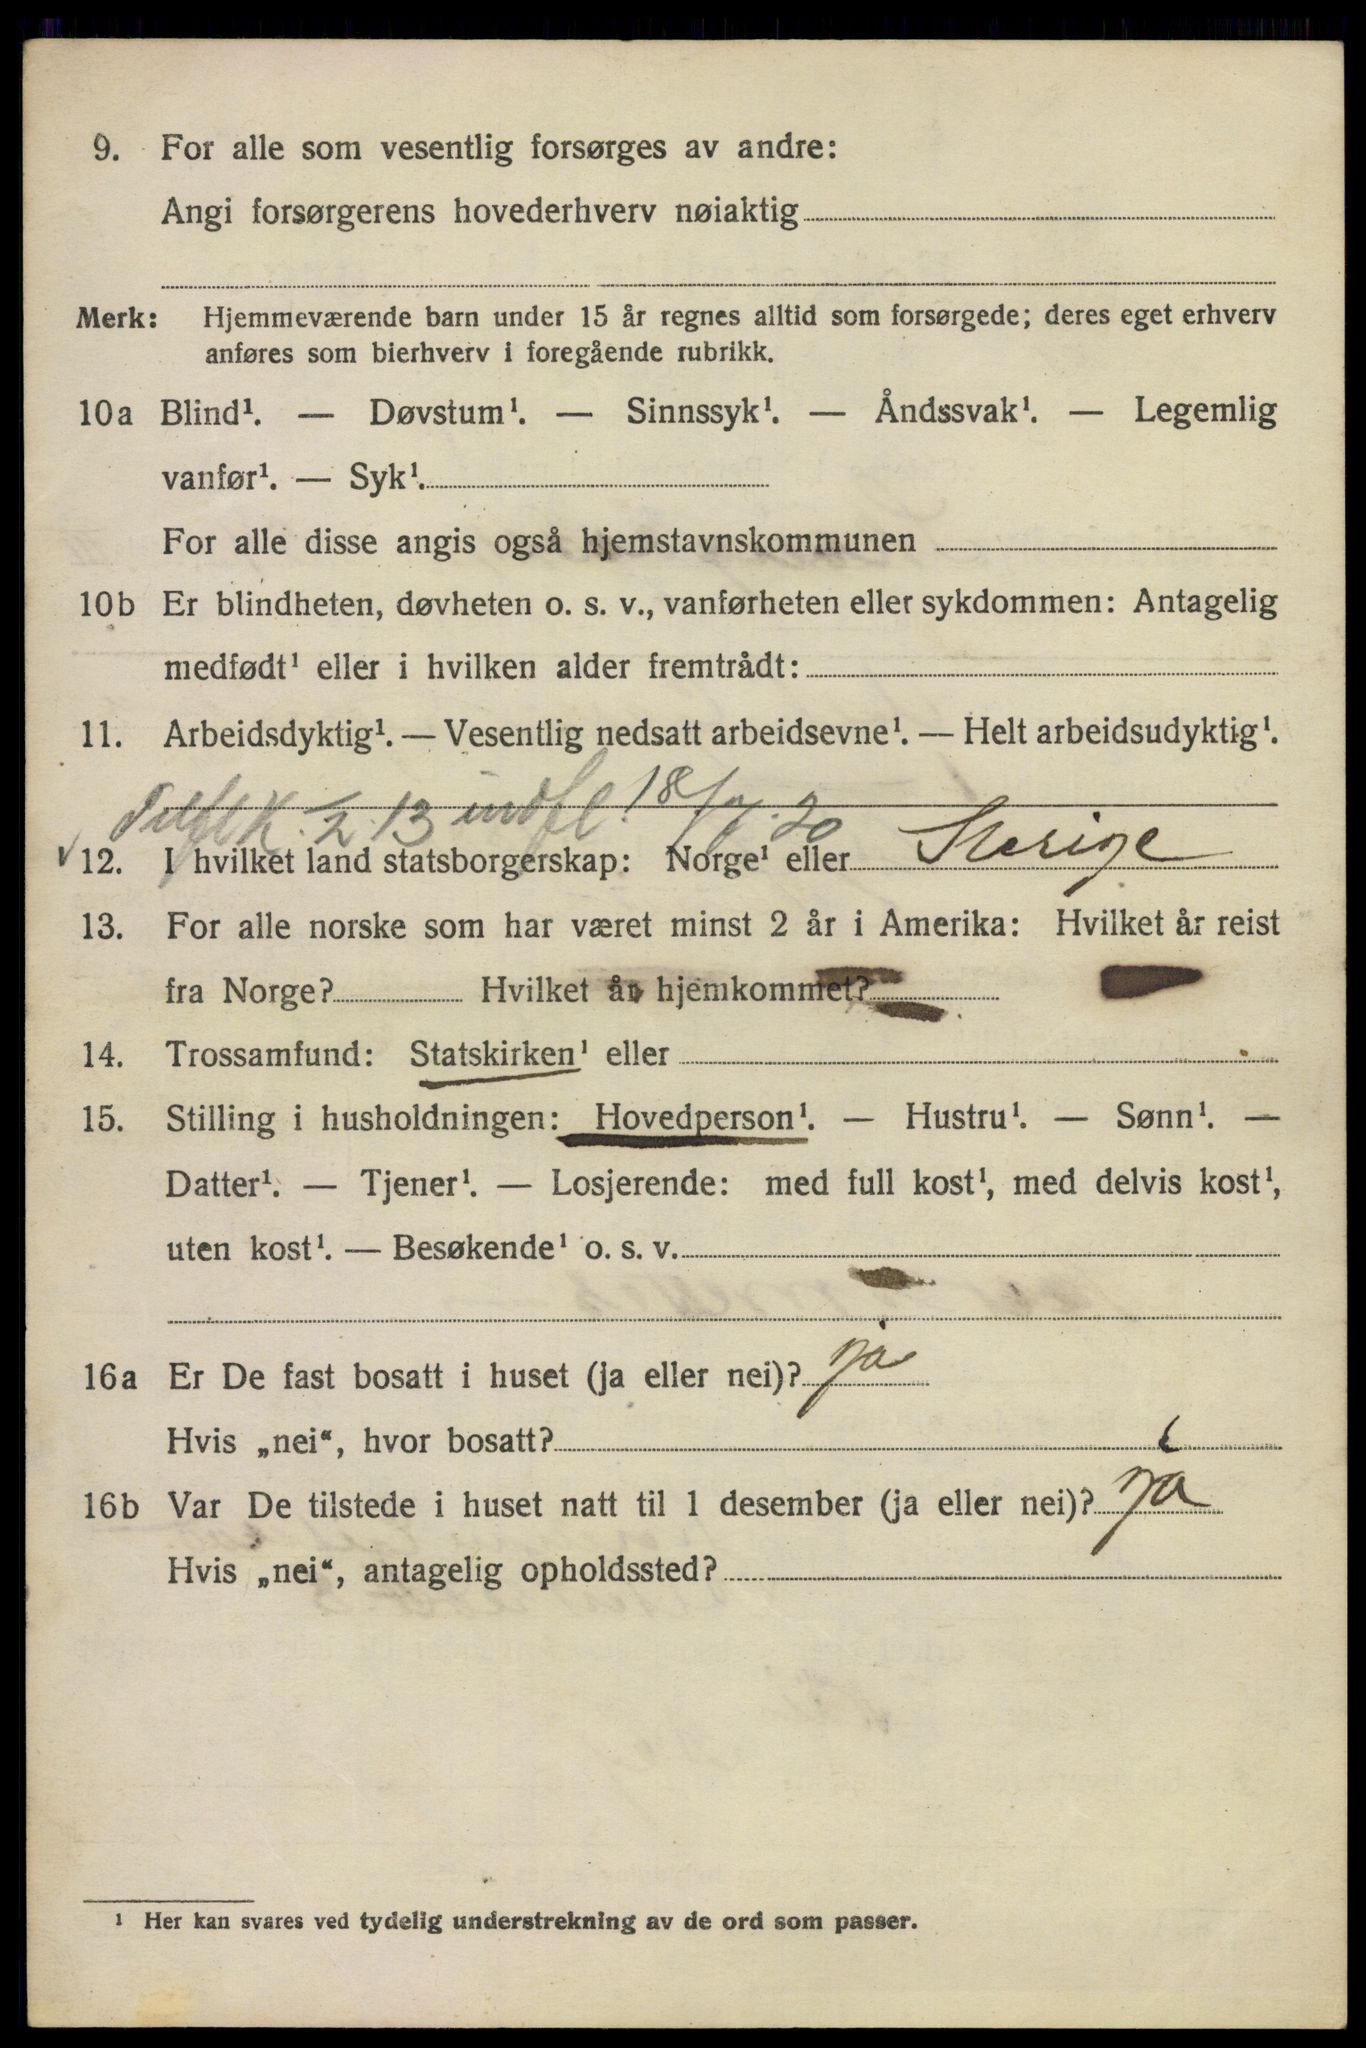 9. For alle som vesentlig forsørges av andre:
Angi forsørgerens hovederhverv nøiaktig
Merk: Hjemmeværende barn under 15 år regnes alltid som forsørgede; deres eget erhverv
anføres som bierhverv i foregående rubrikk.
10a Blind¹. — Døvstum¹. — Sinnssyk¹. — Åndssvak¹. — Legemlig
vanfør¹. — Syk¹.
For alle disse angis også hjemstavnskommunen
10b Er blindheten, døvheten o. s. v., vanførheten eller sykdommen: Antagelig
medfødt¹ eller i hvilken alder fremtrådt:
11. Arbeidsdyktig¹. — Vesentlig nedsatt arbeidsevne¹. — Helt arbeidsudyktig¹.
K. 2. 13 indfl. 18/
12. I hvilket land statsborgerskap: Norge¹ eller Sverige
13. For alle norske som har været minst 2 år i Amerika: Hvilket år reist
fra Norge? Hvilket år hjemkommet?
14. Trossamfund: Statskirken¹ eller
15. Stilling i husholdningen: Hovedperson¹. — Hustru¹. — Sønn¹. —
Datter¹. — Tjener¹. — Losjerende: med full kost¹, med delvis kost¹,
uten kost¹. — Besøkende¹ o. s. v.
16a Er De fast bosatt i huset (ja eller nei)? ja
Hvis „nei“, hvor bosatt?
16b Var De tilstede i huset natt til 1 desember (ja eller nei)? ja
Hvis „nei“, antagelig opholdssted?
¹ Her kan svares ved tydelig understrekning av de ord som passer.